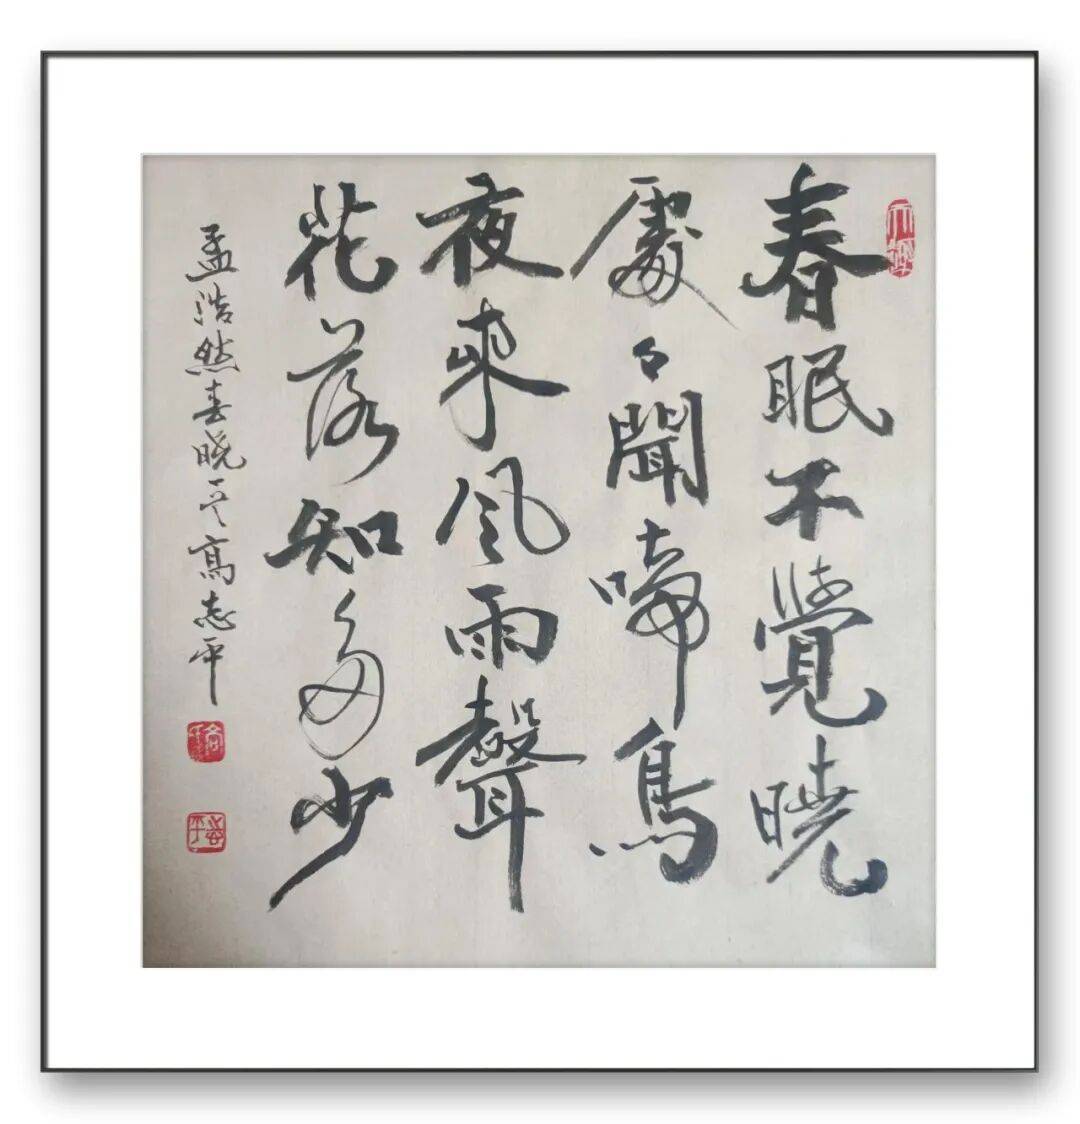 春眠不覺曉
處々聞啼鳥
夜来風雨聲
花落知多少
孟浩然春晓 高志平
志平